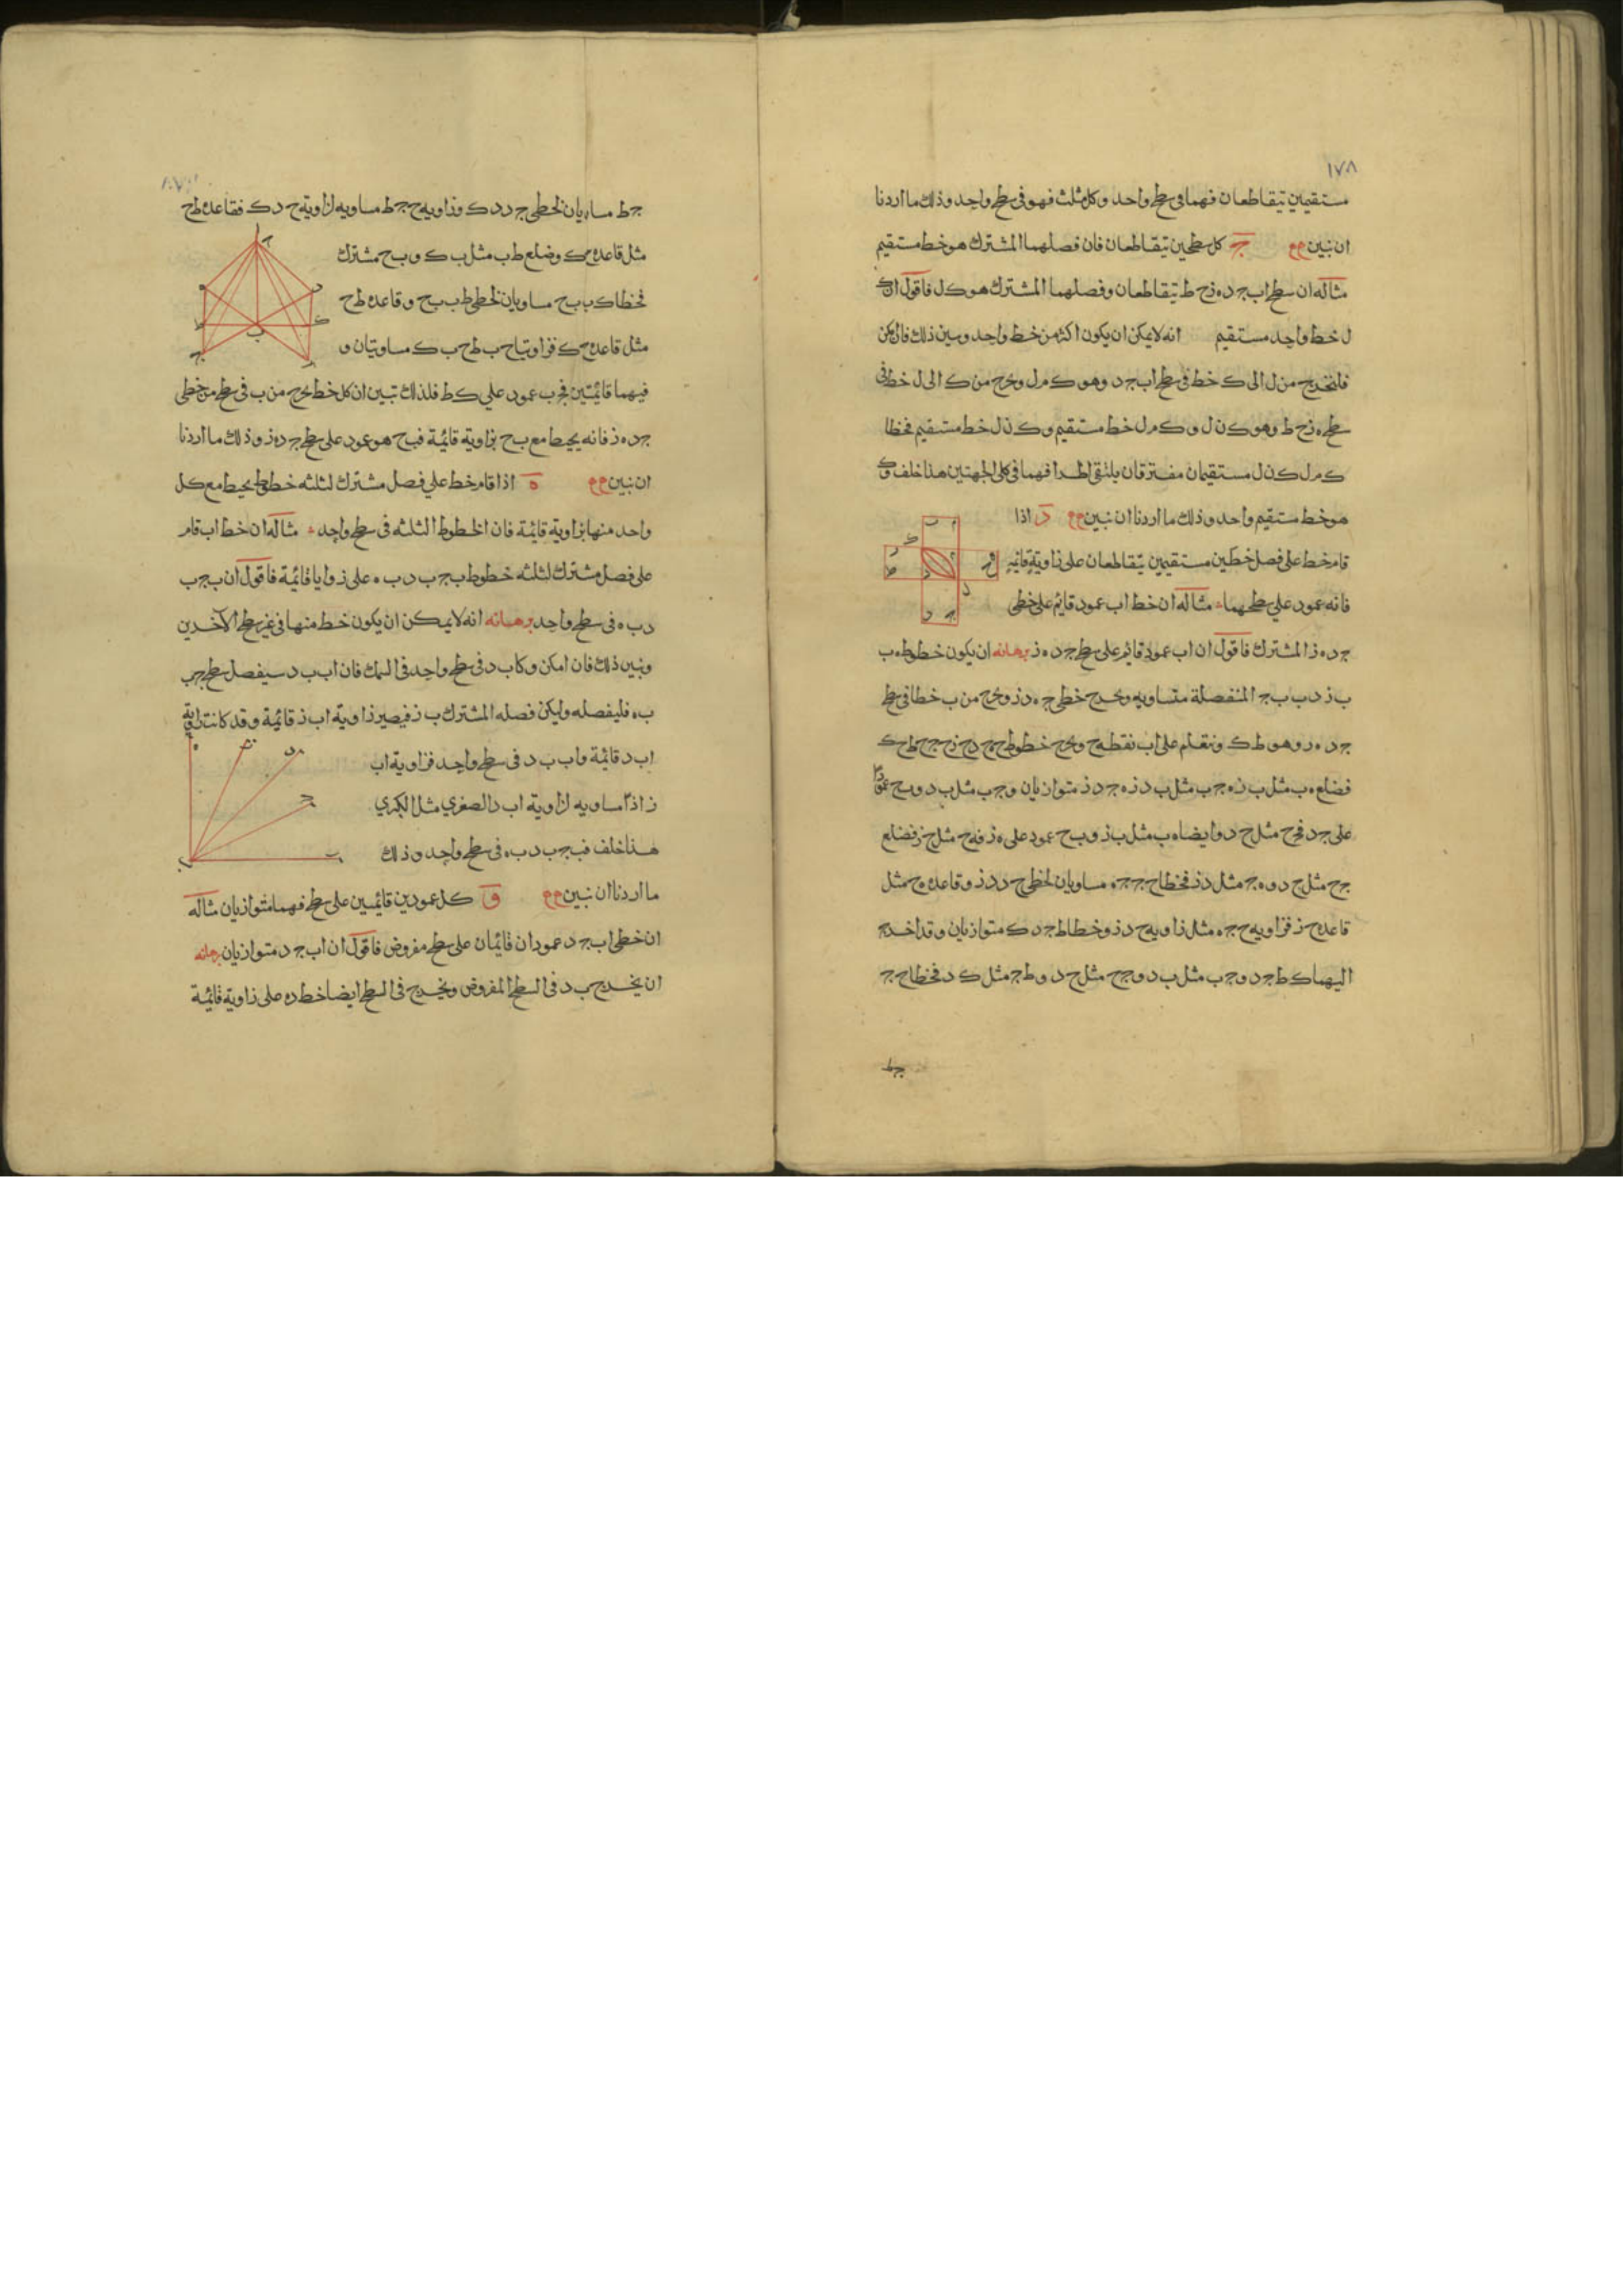 ١٧٨
مستقيمين يتقاطعان فهما في سطح واحد وكل مثلث فهو في سطح واحد وذلك ما اردنا
ان نبين ج كل سطحين يتقاطعان فان فصلهما المشترك هو خط مستقيم
مثاله ان سطحي اب ج د ه ز ح ط يتقاطعان وفصلهما المشترك هو ك ل فاقول ان ك
ل خط واحد مستقيم انه لا يمكن ان يكون اكثر من خط واحد ونبين ذلك فان امكن
فلنخرج من ل الى ك خط في سطح اب ج د وهو ك م ل ونخرج من ك الى ل خط في
سطح ه ز ح ط وهو ك ن ل و ك م ل خط مستقيم و ك ن ل خط مستقيم فخطا
ك م ل ك ن ل مستقيمان مفترقان يلتقي اطرافهما في كلي الجهتين هذا خلف فك
هو خط مستقيم واحد وذلك ما اردنا ان نبين د اذا
قام خط على فصل خطين مستقيمين يتقاطعان على زاوية قائمة
فانه عمود علي سطحهما مثاله ان خط اب عمود قايم على خطي
ج د ه ز المشترك فاقول ان اب عمود قايم على سطح ج د ه ز برهانه ان يكون خطوط ه ب
ب ز د ب ب ج المنفصلة متساويه ونخرج خطي ج ه د ز ونخرج من ب خطا في سطح
ج د ه ز وهو ط ك ونتعلم على اب نقطة ح ونخرج خطوط ح ج ح د ح ز ح ه ح ط ح ك
فضلع ه ب مثل ب ز و ج ب مثل ب د ز ه ج د متوازيان و ج ب مثل ب د و ب ح عمود
على ج د فح ج مثل ح د وايضا ه ب مثل ب ز و ب ح عمود على ه ز فه ح مثل ح ز فضلع
ج ح مثل ح د و ه ج مثل د ز فخطا ح ج ج ه مساويان لخطي ح د د ز وقاعدة ه ح مثل
قاعدة ح ز فزاويه ح ج ه مثل زاويه ح د ز وخطا ط ج د ك متوازيان وقد اخرج
اليهما ك ط ج د و ج ب مثل ب د و ج ح مثل ح د و ط ج مثل ك د فخطا ح ج
ج ط
ج ط مساويان لخطي ح د د ك وزاويه ح ج ط مساويه لزاوية ح د ك فقاعدة ط ح
مثل قاعدة ح ك وضلع ط ب مثل ب ك و ب ح مشترك
فخطا ك ب ب ح مساويان لخطي ط ب ب ح وقاعدة ط ح
مثل قاعدة ح ك فزاويتا ح ب ط ح ب ك مساويتان و
فيهما قائمتين فح ب عمود علي ك ط فلذلك تبين ان كل خط يخرج من ب في سطح من خطي
ج د ه ز فانه يحيط مع ب ح بزاوية قائمة فب ح هو عمود على سطح ج د ه ز وذلك ما اردنا
ان نبين ه اذا قام خط علي فصل مشترك لثلثه خطوط يحيط مع كل
واحد منها بزاوية قايمة فان الخطوط الثلثه في سطح واحد مثاله ان خط اب قام
على فصل مشترك لثلثه خطوط ب ج ب د ب ه على زوايا قائمة فاقول ان ب ج ب
د ب ه في سطح واحد برهانه انه لا يمكن ان يكون خط منها في غير سطح الآخرين
ونبين ذلك فان امكن وكان ب د في سطح واحد في السمك فان اب ب د سيفصل سطح ج ب
ب ه فليفصله وليكن فصله المشترك ب ز فيصير زاوية اب ز قائمة وقد كانت زاوية
اب د قائمة واب ب د في سطح واحد فزاوية اب
ز اذا مساويه لزاوية اب د الصغري مثل الكبري
هذا خلف فب ج ب د ب ه في سطح واحد وذلك
ما اردنا ان نبين و كل عمودين قائمين على سطح فهما متوازيان مثاله
ان خطي اب ج د عمودان قائمان على سطح مفروض فاقول ان اب ج د متوازيان برهانه
ان نخرج ب د في السطح المفروض ونخرج في السطح ايضا خط د ه على زاوية قائمة